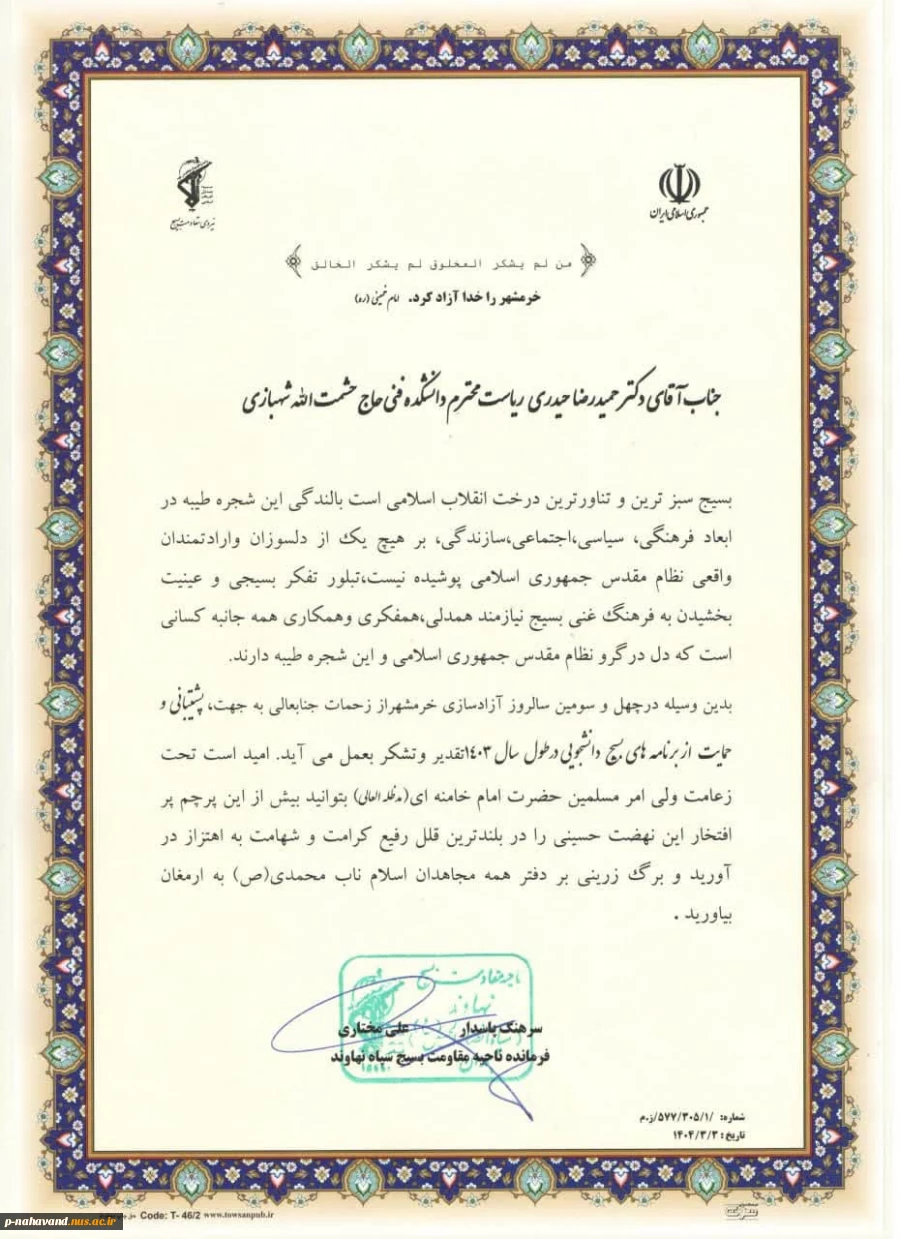 جمهوری اسلامی ایران
نیروی مقاومت بسیج
من لم یشکر المخلوق لم یشکر الخالق
خرمشهر را خدا آزاد کرد. امام خمینی (ره)
جناب آقای دکتر حمیدرضا حیدری ریاست محترم دانشکده فنی حاج حشمت الله شهبازی
بسیج سبز ترین و تناورترین درخت انقلاب اسلامی است بالندگی این شجره طیبه در
ابعاد فرهنگی، سیاسی،اجتماعی،سازندگی، بر هیچ یک از دلسوزان وارادتمندان
واقعی نظام مقدس جمهوری اسلامی پوشیده نیست،تبلور تفکر بسیجی و عینیت
بخشیدن به فرهنگ غنی بسیج نیازمند همدلی،همفکری وهمکاری همه جانبه کسانی
است که دل در گرو نظام مقدس جمهوری اسلامی و این شجره طیبه دارند.
بدین وسیله درچهل و سومین سالروز آزادسازی خرمشهراز زحمات جنابعالی به جهت، پشتیبانی و
حمایت از برنامه های بسیج دانشجویی درطول سال ۱۴۰۳تقدیر وتشکر بعمل می آید. امید است تحت
زعامت ولی امر مسلمین حضرت امام خامنه ای(مدظله العالی) بتوانید بیش از این پرچم پر
افتخار این نهضت حسینی را در بلندترین قلل رفیع کرامت و شهامت به اهتزاز در
آورید و برگ زرینی بر دفتر همه مجاهدان اسلام ناب محمدی(ص) به ارمغان
بیاورید .
ناحیه مقاومت بسیج
نهاوند
سرهنگ پاسدار علی مختاری
فرمانده ناحیه مقاومت بسیج سپاه نهاوند
شماره: /۵۷۷/۳۰۵/۱/ز.م
تاریخ: ۱۴۰۴/۳/۳
Code: T- 46/2 www.towsanpub.ir
p-nahavand.nus.ac.ir